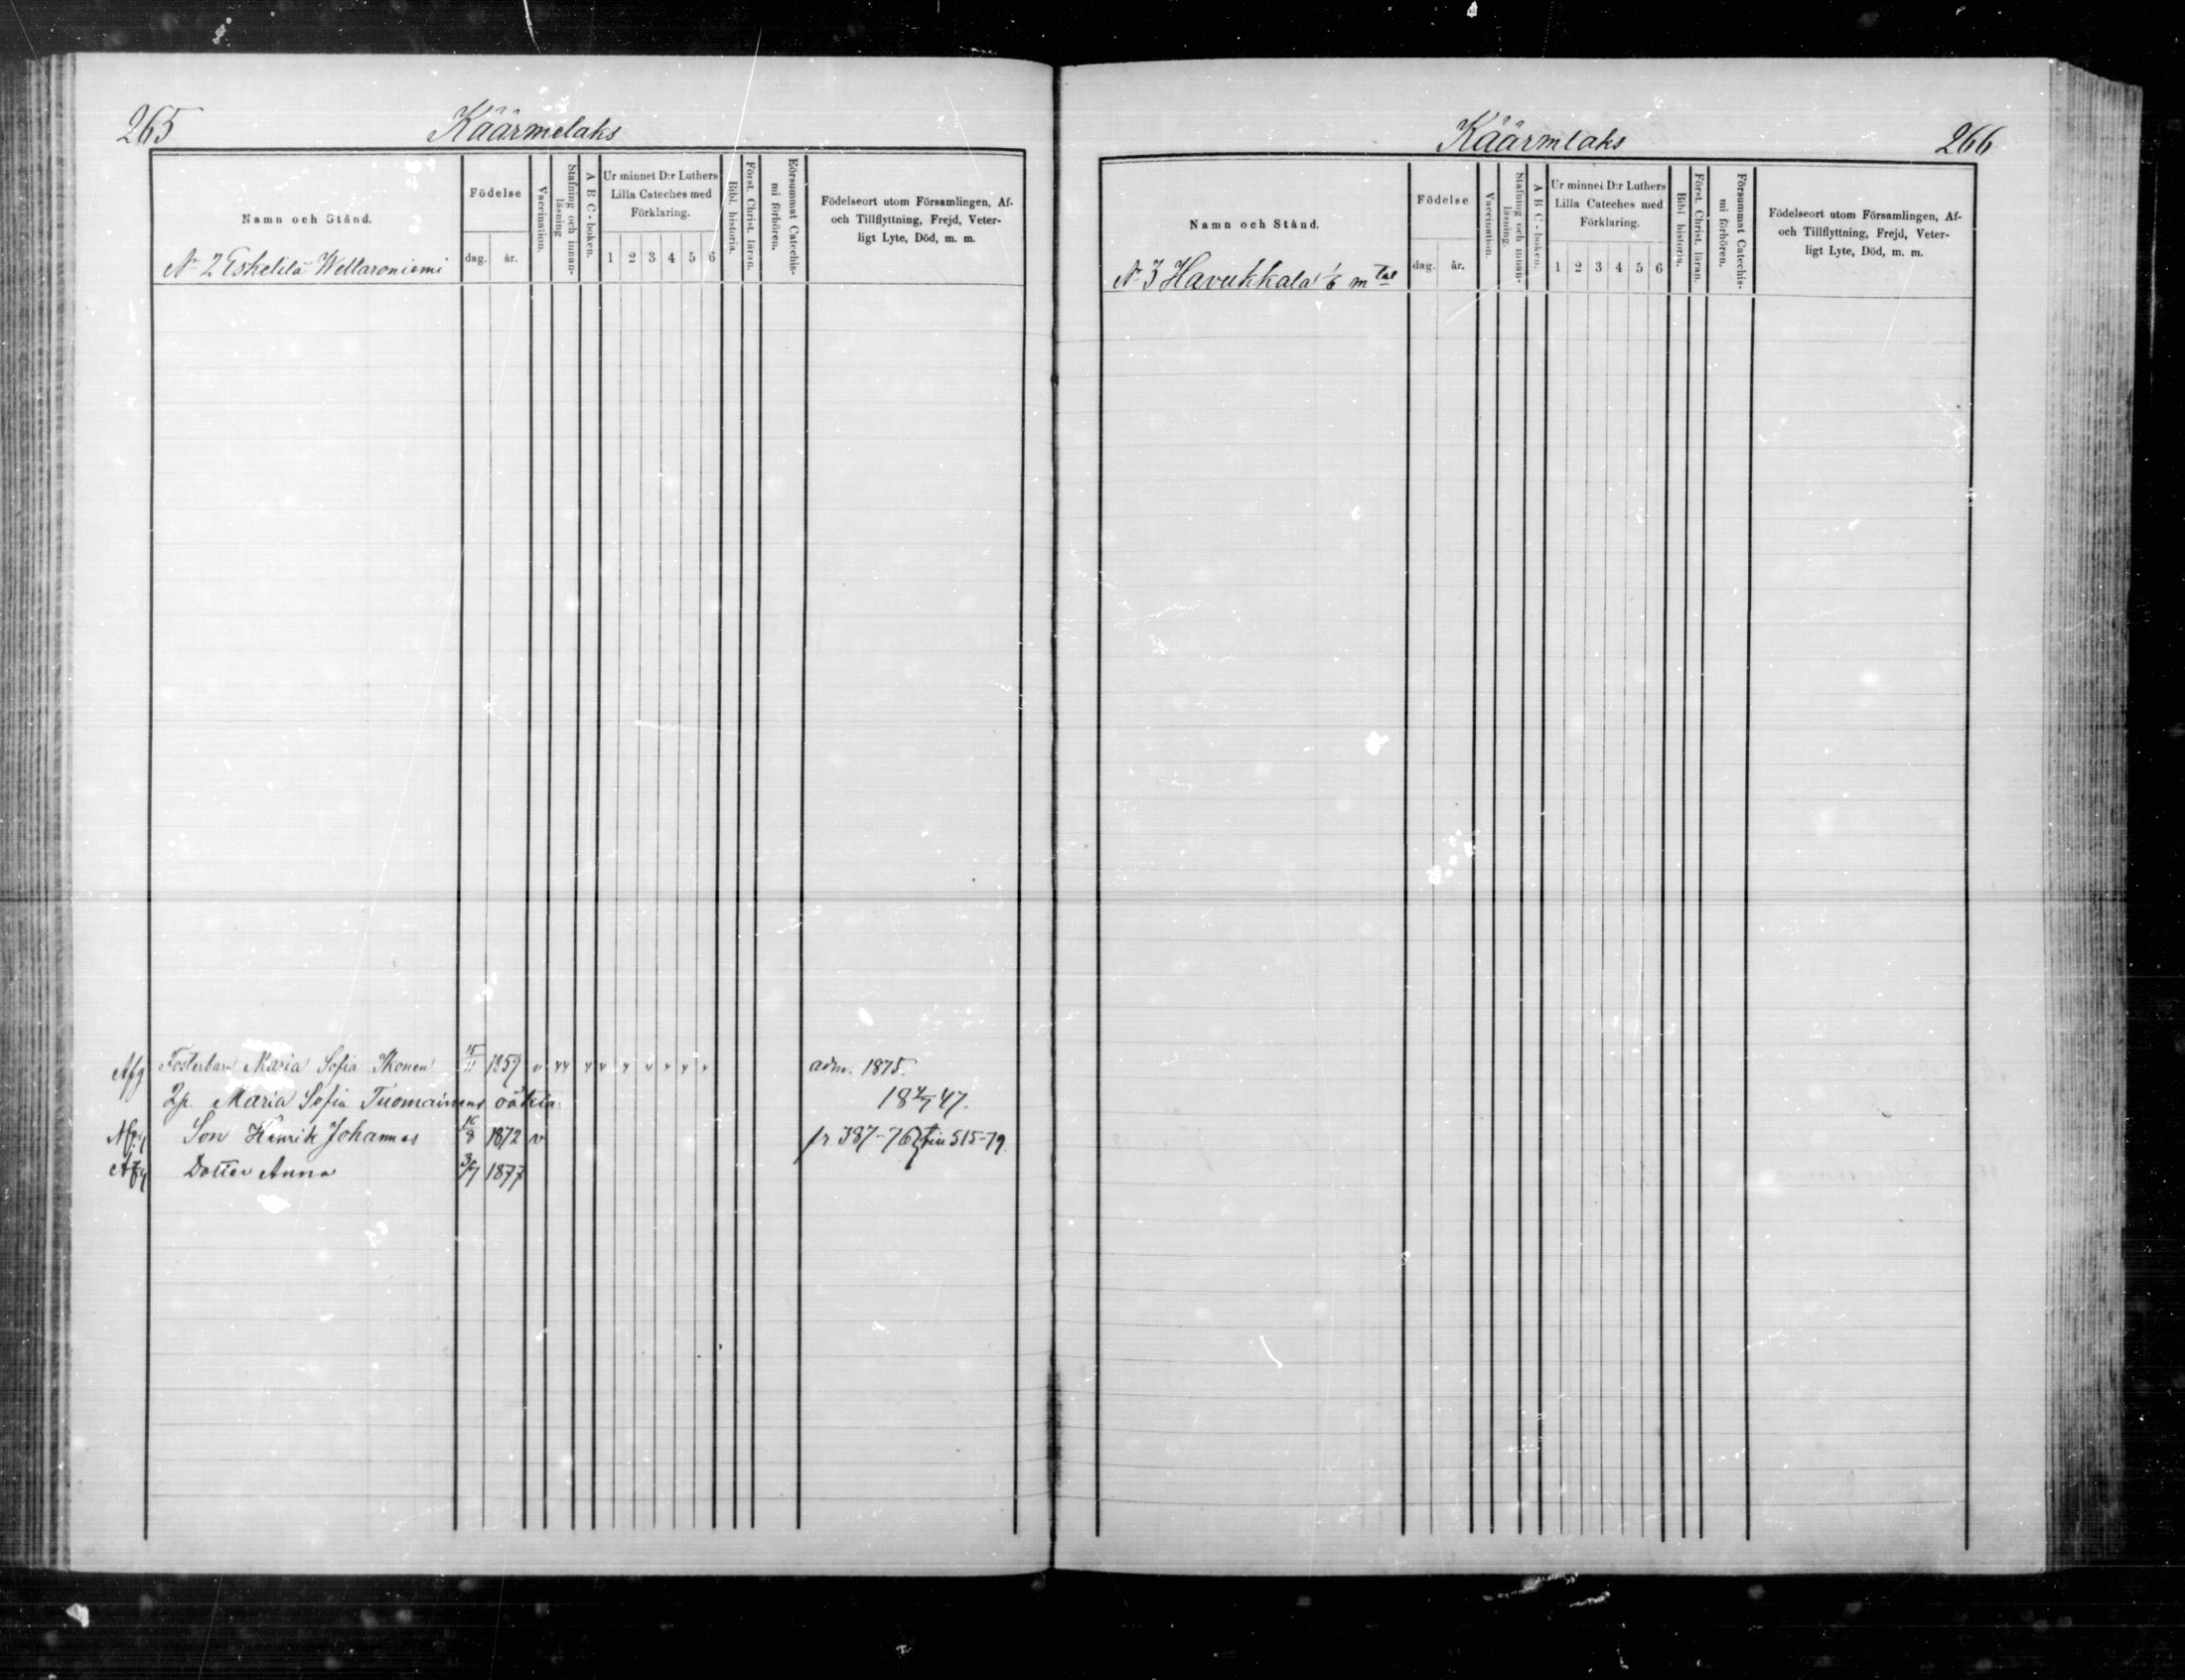 265
Käärmelaks
Namn och Stånd.
Födelse
dag.
år.
Vaccination.
Stafning och innan-
läsning
A B C - boken.
Ur minnet D:r Luthers
Lilla Cateches med
Förklaring.
1 2 3 4 5 6
Bibl. historia.
Först. Christ. läran.
Försummat Catechis-
mi förhören.
Födelseort utom Församlingen, Af-
och Tillflyttning, Frejd, Veter-
ligt Lyte, Död, m. m.
No 2 Eskelilä Wellaroniemi
Afg Fosterbarn Maria Sofia Ikonen 15/11 1859 v vv v v v v v v v adm. 1875.
Maria Sofia Tuomainens oäkta: 47.
Afg Son Henrik Johannes 16/8 1872 v fr 387-76 515-79
Afg Dotter Anna 1877
Käärmlaks
266
Namn och Stånd.
Födelse
dag.
år.
Vaccination.
Stafning och innan-
läsning.
A B C - boken.
Ur minnet D:r Luthers
Lilla Cateches med
Förklaring.
1 2 3 4 5 6
Bibl historia.
Först. Christ. läran.
Försummat Catechis-
mi förhören.
Födelseort utom Församlingen, Af-
och Tillflyttning, Frejd, Veter-
ligt Lyte, Död, m. m.
No 3 Havukkala 1/6 mtal